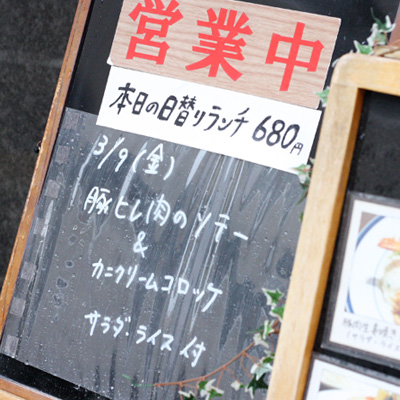 営業中
本日の日替りランチ 680円
3/9(金)
豚ヒレ肉のソテー
&
カニクリームコロッケ
サラダ・ライス付